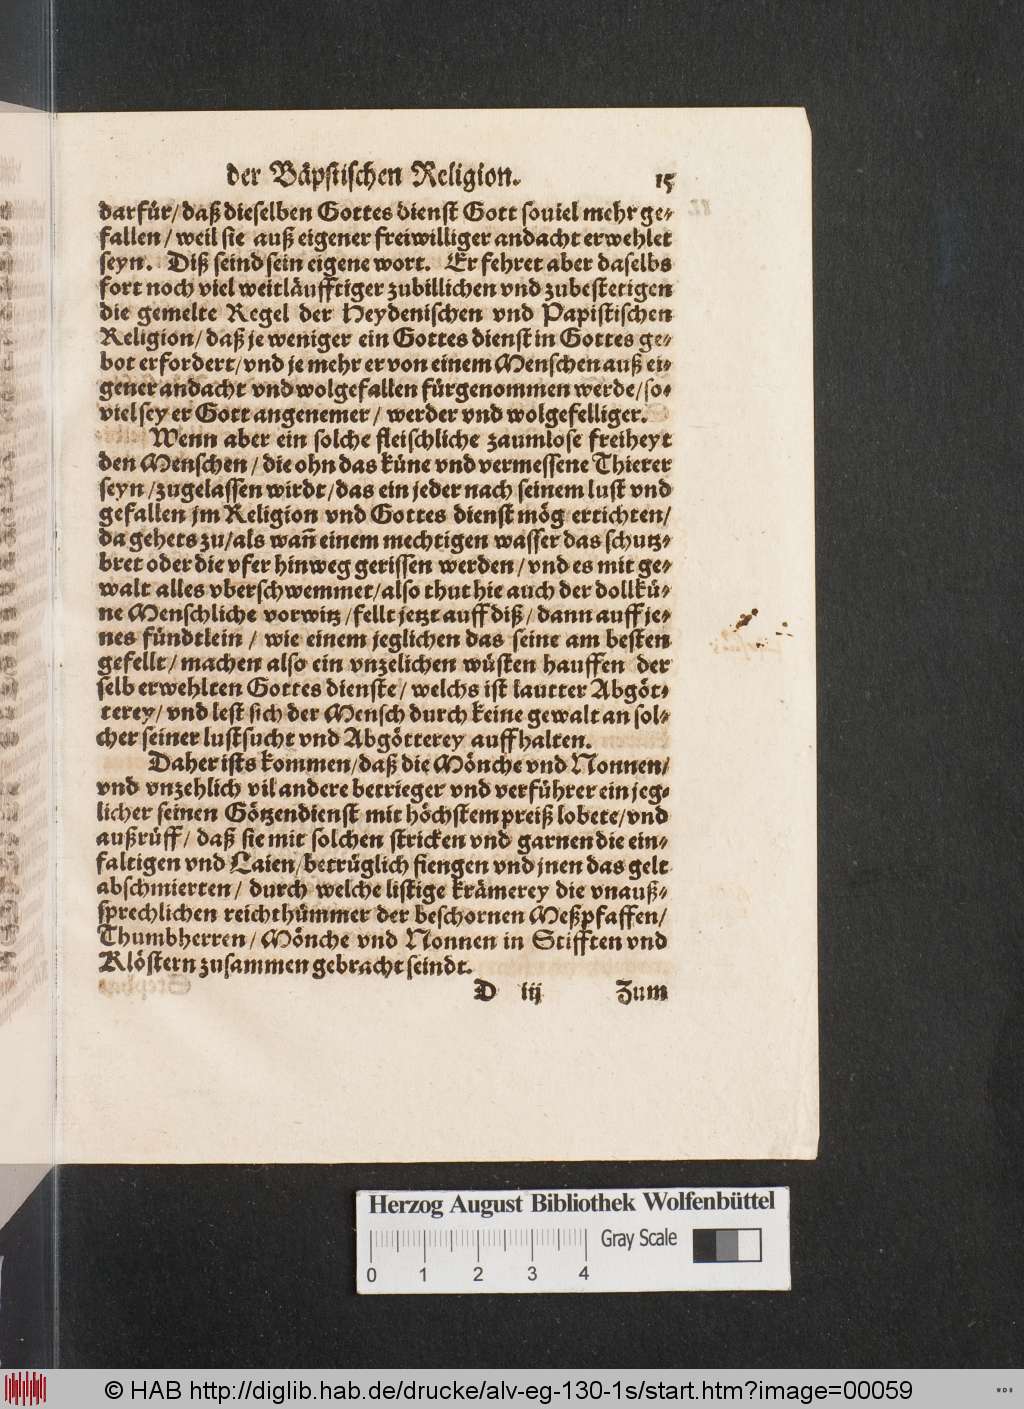 der Bäpstischen Religion. 15
darfür/ daß dieselben Gottes dienst Gott souiel mehr ge-
fallen / weil sie auß eigener freiwilliger andacht erwehlet
seyn. Diß seind sein eigene wort. Er fehret aber daselbs
fort noch viel weitläufftiger zubillichen vnd zubestetigen
die gemelte Regel der Heydenischen vnd Papistischen
Religion/ daß je weniger ein Gottes dienst in Gottes ge-
bot erfordert/ vnd je mehr er von einem Menschen auß ei-
gener andacht vnd wolgefallen fürgenommen werde/ so-
viel sey er Gott angenemer / werder vnd wolgefelliger.
Wenn aber ein solche fleischliche zaumlose freiheyt
den Menschen / die ohn das küne vnd vermessene Thierer
seyn / zugelassen wirdt/ das ein jeder nach seinem lust vnd
gefallen jm Religion vnd Gottes dienst mög ertichten/
da gehets zu/ als wañ einem mechtigen wasser das schutz-
bret oder die vfer hinweg gerissen werden / vnd es mit ge-
walt alles vberschwemmet/ also thut hie auch der dollkü-
ne Menschliche vorwitz / fellt jetzt auff diß / dann auff je-
nes fündtlein / wie einem jeglichen das seine am besten
gefellt/ machen also ein vnzelichen wüsten hauffen der
selb erwehlten Gottes dienste/ welchs ist lautter Abgöt-
terey/ vnd lest sich der Mensch durch keine gewalt an sol-
cher seiner lustsucht vnd Abgötterey auffhalten.
Daher ists kommen/ daß die Mönche vnd Nonnen/
vnd vnzehlich vil andere betrieger vnd verführer ein jeg-
licher seinen Götzendienst mit höchstem preiß lobete/ vnd
außrüff/ daß sie mit solchen stricken vnd garnen die ein-
faltigen vnd Laien/ betrüglich fiengen vnd jnen das gelt
abschmierten / durch welche listige krämerey die vnauß-
sprechlichen reichthümmer der beschornen Meßpfaffen/
Thumbherren / Mönche vnd Nonnen in Stifften vnd
Klöstern zusammen gebracht seindt.
D iij Zum
Herzog August Bibliothek Wolfenbüttel
Gray Scale
0 1 2 3 4
© HAB http://diglib.hab.de/drucke/alv-eg-130-1s/start.htm?image=00059